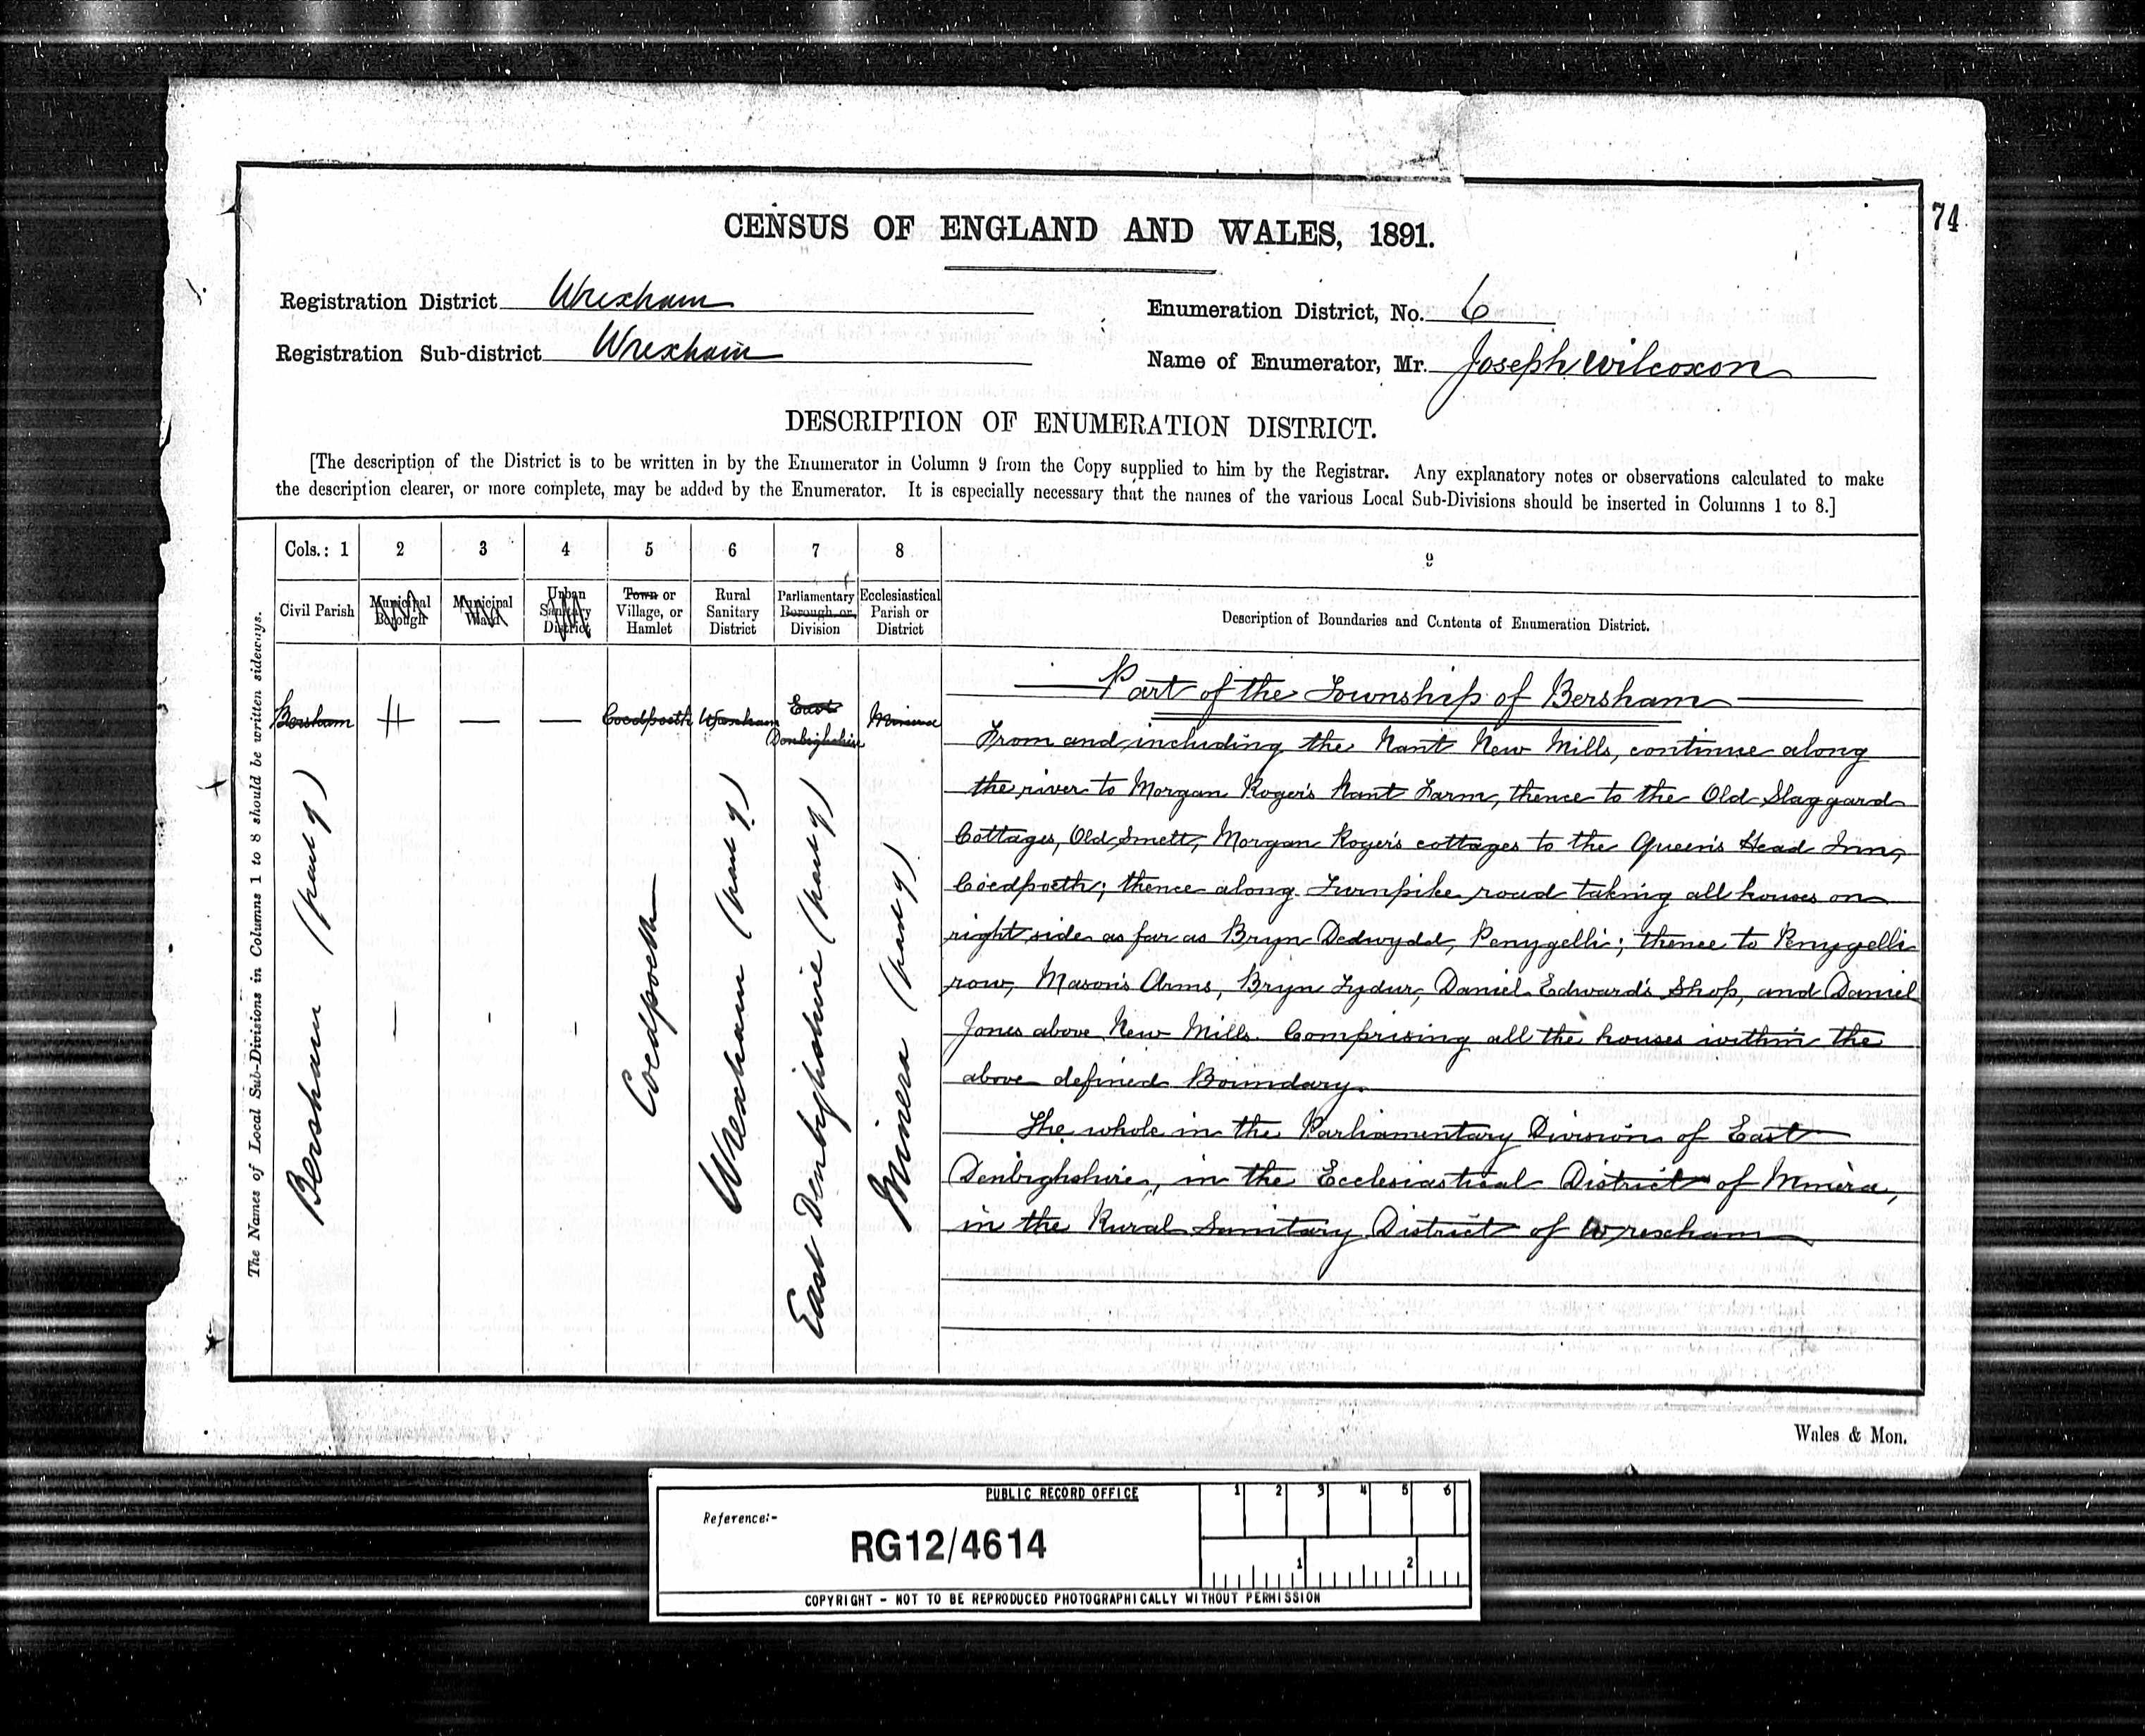 74
CENSUS OF ENGLAND AND WALES, 1891.
Registration District Wrexham
Enumeration District, No. 6
Registration Sub-district Wrexham
Name of Enumerator, Mr. Joseph Wilcoxon
DESCRIPTION OF ENUMERATION DISTRICT.
[The description of the District is to be written in by the Enumerator in Column 9 from the Copy supplied to him by the Registrar. Any explanatory notes or observations calculated to make
the description clearer, or more complete, may be added by the Enumerator. It is especially necessary that the names of the various Local Sub-Divisions should be inserted in Columns 1 to 8.]
The Names of Local Sub-Divisions in Columns 1 to 8 should be written sideways.
Cols.: 1 2 3 4 5 6 7 8 9
Civil Parish
Municipal Borough
Municipal Ward
Urban Sanitary District
Town or Village, or Hamlet
Rural Sanitary District
Parliamentary Borough or Division
Ecclesiastical Parish or District
Description of Boundaries and Contents of Enumeration District.
Bersham
Coedpoeth
Wrexham
East Denbighshire
Minera
Bersham (part of)
Coedpoeth
Wrexham (part of)
East Denbighshire (part of)
Minera (part of)
Part of the Township of Bersham
From and including the Nant New Mills, continue along
the river to Morgan Roger's Nant Farm, thence to the Old Slaggard
Cottages, Old Smelt, Morgan Roger's cottages to the Queen's Head Inn,
Coedpoeth; thence along Turnpike road taking all houses on
right side as far as Bryn Dedwydd, Penygelli; thence to Penygelli
row, Mason's Arms, Bryn Tydur, Daniel Edward's Shop, and Daniel
Jones above New Mills. Comprising all the houses within the
above defined Boundary.
The whole in the Parliamentary Division of East
Denbighshire, in the Ecclesiastical District of Minera,
in the Rural Sanitary District of Wrexham
Wales & Mon.
PUBLIC RECORD OFFICE
1 2 3 4 5 6
Reference:-
RG12/4614
1 2
COPYRIGHT - NOT TO BE REPRODUCED PHOTOGRAPHICALLY WITHOUT PERMISSION